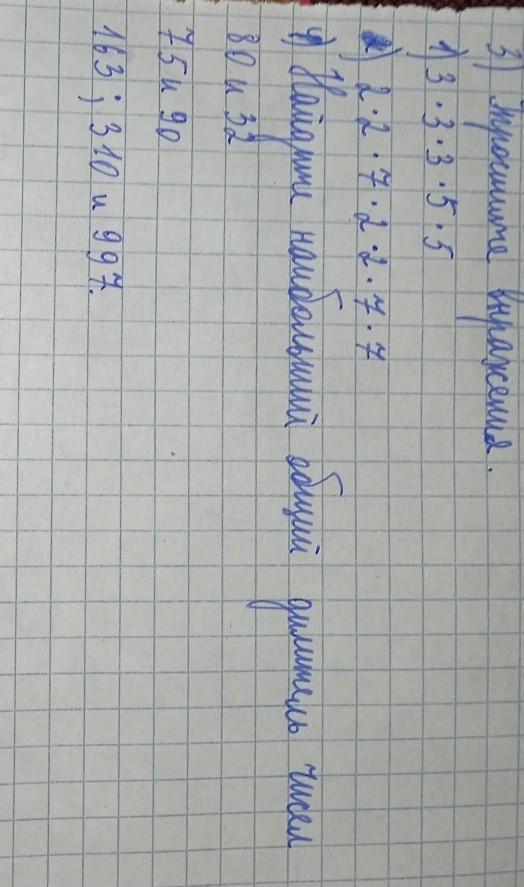 3) Упростите выражения.
1) 3 · 3 · 3 · 5 · 5
2) 2 · 2 · 7 · 2 · 2 · 7 · 7
4) Найдите наибольший общий дилитель чисел
80 и 32
75 и 90
163; 310 и 997.